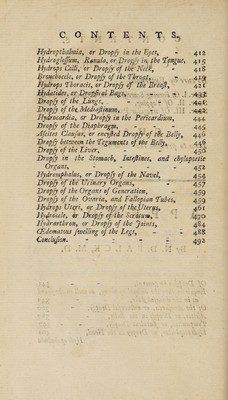 CONTENTS,
Hydropthalmia, or Dropsy in the Eyes, - 412
Hydroglossum, Ranula, or Dropsy in the Tongue, 415
Hydrops Colli, or Dropsy of the Neck, 418
Bronchocele, or Dropsy of the Throat, - 419
Hydrops Thoracis, or Dropsy of the Breast, 421
Hydatides, or Dropsical Bags,
Dropsy of the Lungs,
Dropsy of the Mediastinum,
Hydrocardia, or Dropsy in the Pericardium, 444
Dropsy of the Diaphragm, 445
Ascites Clausus, or encysted Dropsy of the Belly, 446
Dropsy between the Teguments of the Belly,
Dropsy of the Liver, 450
Dropsy in the Stomach, Intestines, and chylopoetic
Organs, - 452
Hydromphalus, or Dropsy of the Navel, 454
Dropsy of the Urinary Organs, - 457
Dropsy of the Organs of Generation, - 459
Dropsy of the Ovaria, and Fallopian Tubes, 459
Hydrops Uteri, or Dropsy of the Uterus, 461
Hydrocele, or Dropsy of the Scrotum, 470
Hydrarthron, or Dropsy of the Joints, 484
Œdematous swelling of the Legs, - 488
Conclusion. - - - 492